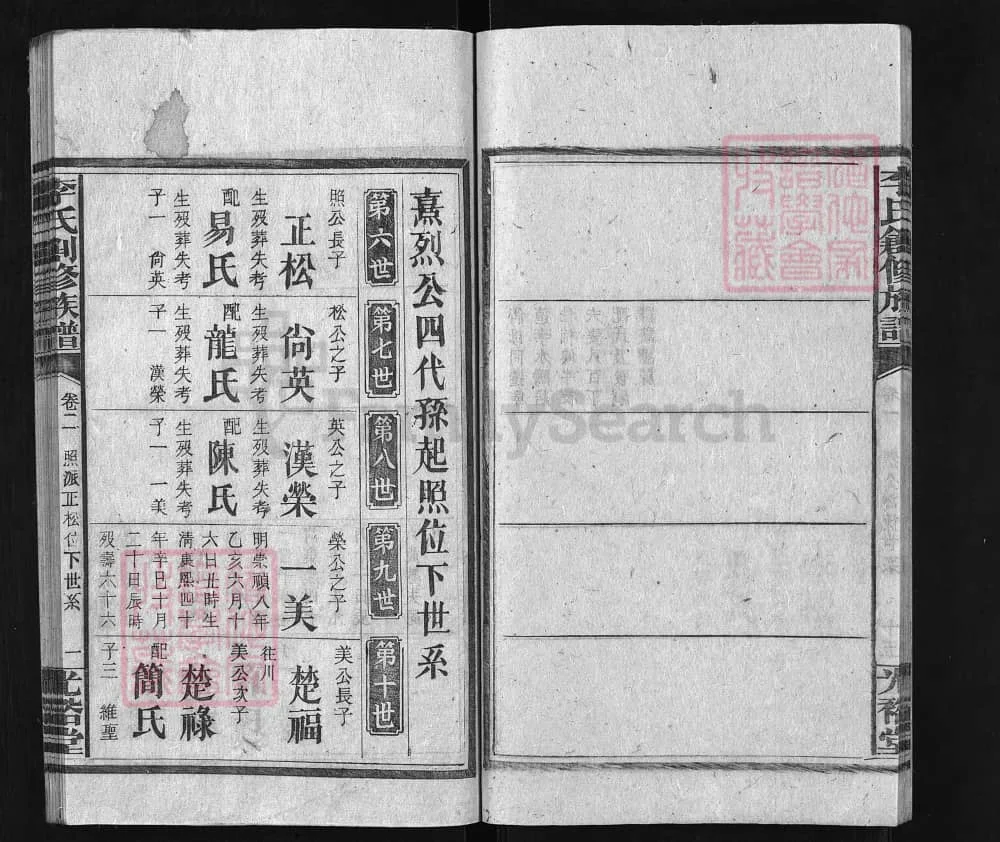 李氏創修族譜
光裕堂
熹烈公四代孫起照位下世系
第六世
第七世
第八世
第九世
第十世
照公長子
正松
生歿葬失考
配
易氏
生歿葬失考
子一 尙英
松公之子
尙英
生歿葬失考
配
龍氏
生歿葬失考
子一 漢榮
英公之子
漢榮
生歿葬失考
配
陳氏
生歿葬失考
子一 一美
榮公之子
一美
明崇禎八年
乙亥六月十
六日丑時生
清康熙四十
年辛巳十月
二十日辰時
歿壽六十六
美公長子
楚福
往川
美公次子
楚祿
配
簡氏
子三 維聖
李氏創修族譜
卷二 照派正松位下世系 一
光裕堂
FamilySearch